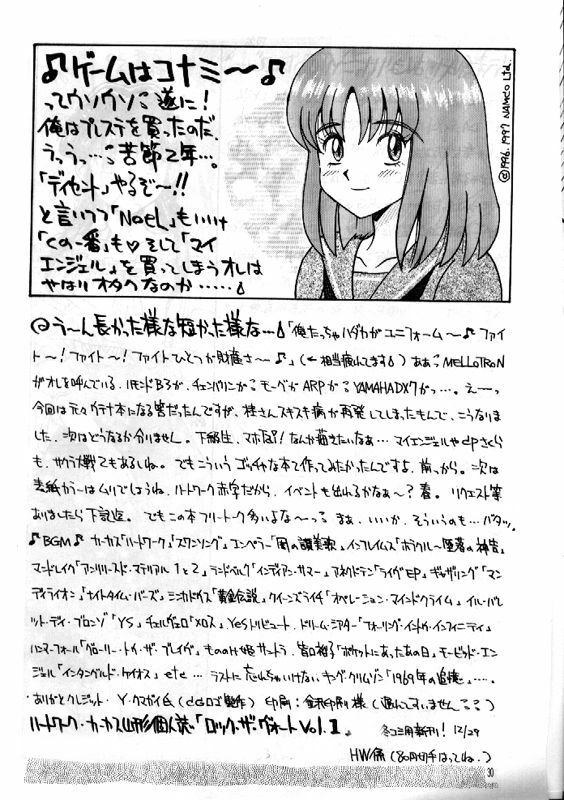 ♪ゲームはコナミ〜♪
ってウソウソ 遂に!
俺はプレステを買ったのだ
うっうっ…苦節2年…。
「ディセント」やるぞ〜!!
と言いつつ「NOëL」もいいけ
「くの一番」も♡そして「マイ
エンジェル」を買ってしまうオレは
やはりオタクなのか……
©1996, 1997 NAMCO Ltd.
う〜ん長かった様な短かった様な…「俺たっちゃハダカがユニフォーム〜♪ファイ
ト〜!ファイト〜!ファイトひとつが財産さ〜♪」(←相当疲れてます)ああ MELLOTRON
がオレを呼んでいる、ハモンドB3が、チェンバリンが モーグが ARPが YAMAHA DX7がっ…。えーっ
今回は元々 本になる筈だったんですが、桂さんスキスキ病が再発してしまったもんで、こうなりま
した、次はどうなるか分りません。下級生、マホ なんか描きたいなぁ…マイエンジェルや さくら
も、サクラ大戦てもあるしね。でもこういうゴッチャな本て作ってみたかったんですよ、前っから。次は
表紙カラーはムリでしょうね、ハートワーク赤字だから、イベントも出れるかなぁ〜?春。リクエスト等
ありましたら下記迄。でもこの本フリートーク多いよな〜っ まぁ、いいか、そういうのも…バタッ。
♪BGM♪ カーカス「ハートワーク」「スワンソング」エンペラー「闇の讃美歌」インフレイムス「 〜堕落の神告」
マンドレイク「アンリリースド・マテリアル1と2」ランドベルグ「インディアン・サマー」アネクドテン「ライヴEP」ギャザリング「マン
ディライオン」「ナイトタイム・バーズ」ミカドガス「黄金伝説」クイーンズライチ「オペレーション・マインドクライム」イル・バレ
ット・ディ・ブロンゾ「YS」チェルヴェロ「メロス」Yesトリビュート、ドリーム・シアター「フォーリング・イントゥ・インフィニティ」
ハンマーフォール「グローリー・トゥ・ザ・ブレイヴ」もののけ姫サントラ、 「ポケットにあったあの日」モービッド・エン
ジェル「インタングルド・ケイオス」etc… ラストに忘れちゃいけないキング・クリムゾン「1969年の追憶」……。
ありがとクレジット・Y・クマガイ氏( ロゴ製作) 印刷: 印刷様(遅れてすいません)
ハートワーク・カーカス山形個人誌「ロック・ザ・ヴォート Vol.1」 冬コミ用新刊! 12/29
HW係(80円切手はってね。)
30